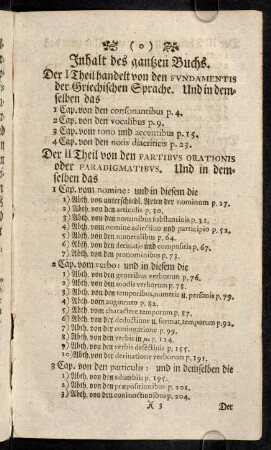 ( o )
Inhalt des gantzen Buchs.
Der I Theil handelt von den FVNDAMENTIS
der Griechischen Sprache. Und in dem-
selben das
1 Cap. von den consonantibus p. 4.
2 Cap. von den vocalibus p. 9.
3 Cap. vom tono und accentibus p. 15.
4 Cap. von den notis diacriticis p. 23.
Der II Theil von den PARTIBVS ORATIONIS
oder PARADIGMATIBVS. Und in dem-
selben das
1 Cap. vom nomine: und in diesem die
1) Abth. von unterschiedl. Arten der nominum p. 27.
2) Abth. von den articulis p. 30.
3) Abth. von den nominibus substantivis p. 31.
4) Abth. vom nomine adjectivo und participio p. 52.
5) Abth. von den numeralibus p. 64.
6) Abth. von den derivatis und compositis p. 67.
7) Abth. von den pronominibus p. 73.
2 Cap. vom verbo: und in diesem die
1) Abth. von den generibus verborum p. 76.
2) Abth. von den modis verborum p. 78.
3) Abth. von den temporibus, numeris u. personis p. 79.
4) Abth. vom augmento p. 82.
5) Abth. vom charactere temporum p. 87.
6) Abth. von der deductione u. format. temporum p. 92.
7) Abth. von der coniugatione p. 99.
8) Abth. von den verbis in μι p. 124.
9) Abth. von den verbis defectivis p. 155.
10) Abth. von der derivatione verborum p. 191.
3 Cap. von den particulis: und in demselben die
1) Abth. von den adverbiis p. 195.
2) Abth. von den præpositionibus p. 201.
3) Abth. von den coniunctionibus p. 204.
3 Der